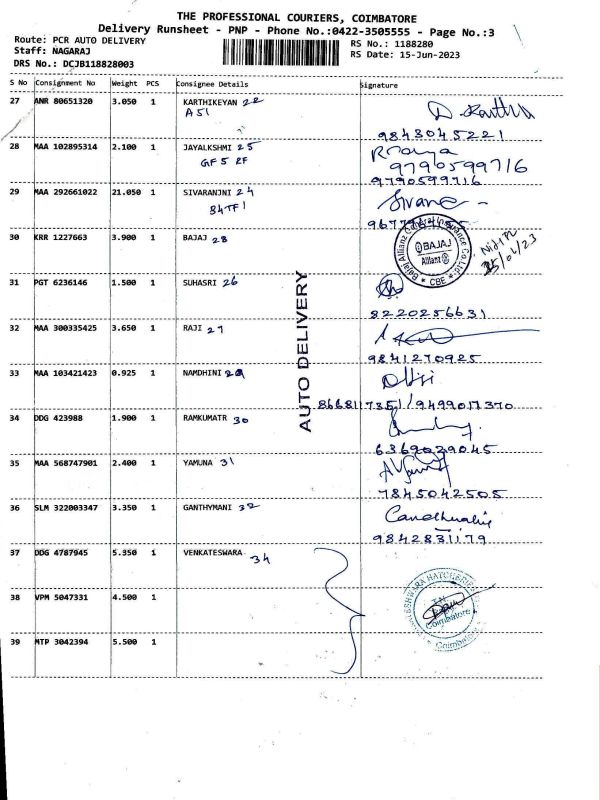 THE PROFESSIONAL COURIERS, COIMBATORE
Delivery Runsheet - PNP - Phone No.:0422-3505555 - Page No.:3
Route: PCR AUTO DELIVERY
RS No.: 1188280
Staff: NAGARAJ
RS Date: 15-Jun-2023
DRS No.: DCJB118828003
S No Consignment No Weight PCS Consignee Details Signature
27 ANR 80651320 3.050 1 KARTHIKEYAN 22
A51
9843045221
28 MAA 102895314 2.100 1 JAYALKSHMI 25
GF5 2F
9790599716
9790599716
29 MAA 292661022 21.050 1 SIVARANJNI 24
B4TF1
30 KRR 1227663 3.900 1 BAJAJ 28
Bajaj Allianz General Insurance Co. Ltd.
BAJAJ
Allianz
* CBE *
31 PGT 6236146 1.500 1 SUHASRI 26
8220256631
32 MAA 300335425 3.650 1 RAJI 27
9841270925
33 MAA 103421423 0.925 1 NAMDHINI 29
8668117351/9499017370
34 DDG 423988 1.900 1 RAMKUMATR 30
6369029045
35 MAA 568747901 2.400 1 YAMUNA 31
7845042505
36 SLM 322003347 3.350 1 GANTHYMANI 32
9842831179
37 DDG 4787945 5.350 1 VENKATESWARA
34
38 VPM 5047331 4.500 1
Coimbatore
39 MTP 3042394 5.500 1
AUTO DELIVERY